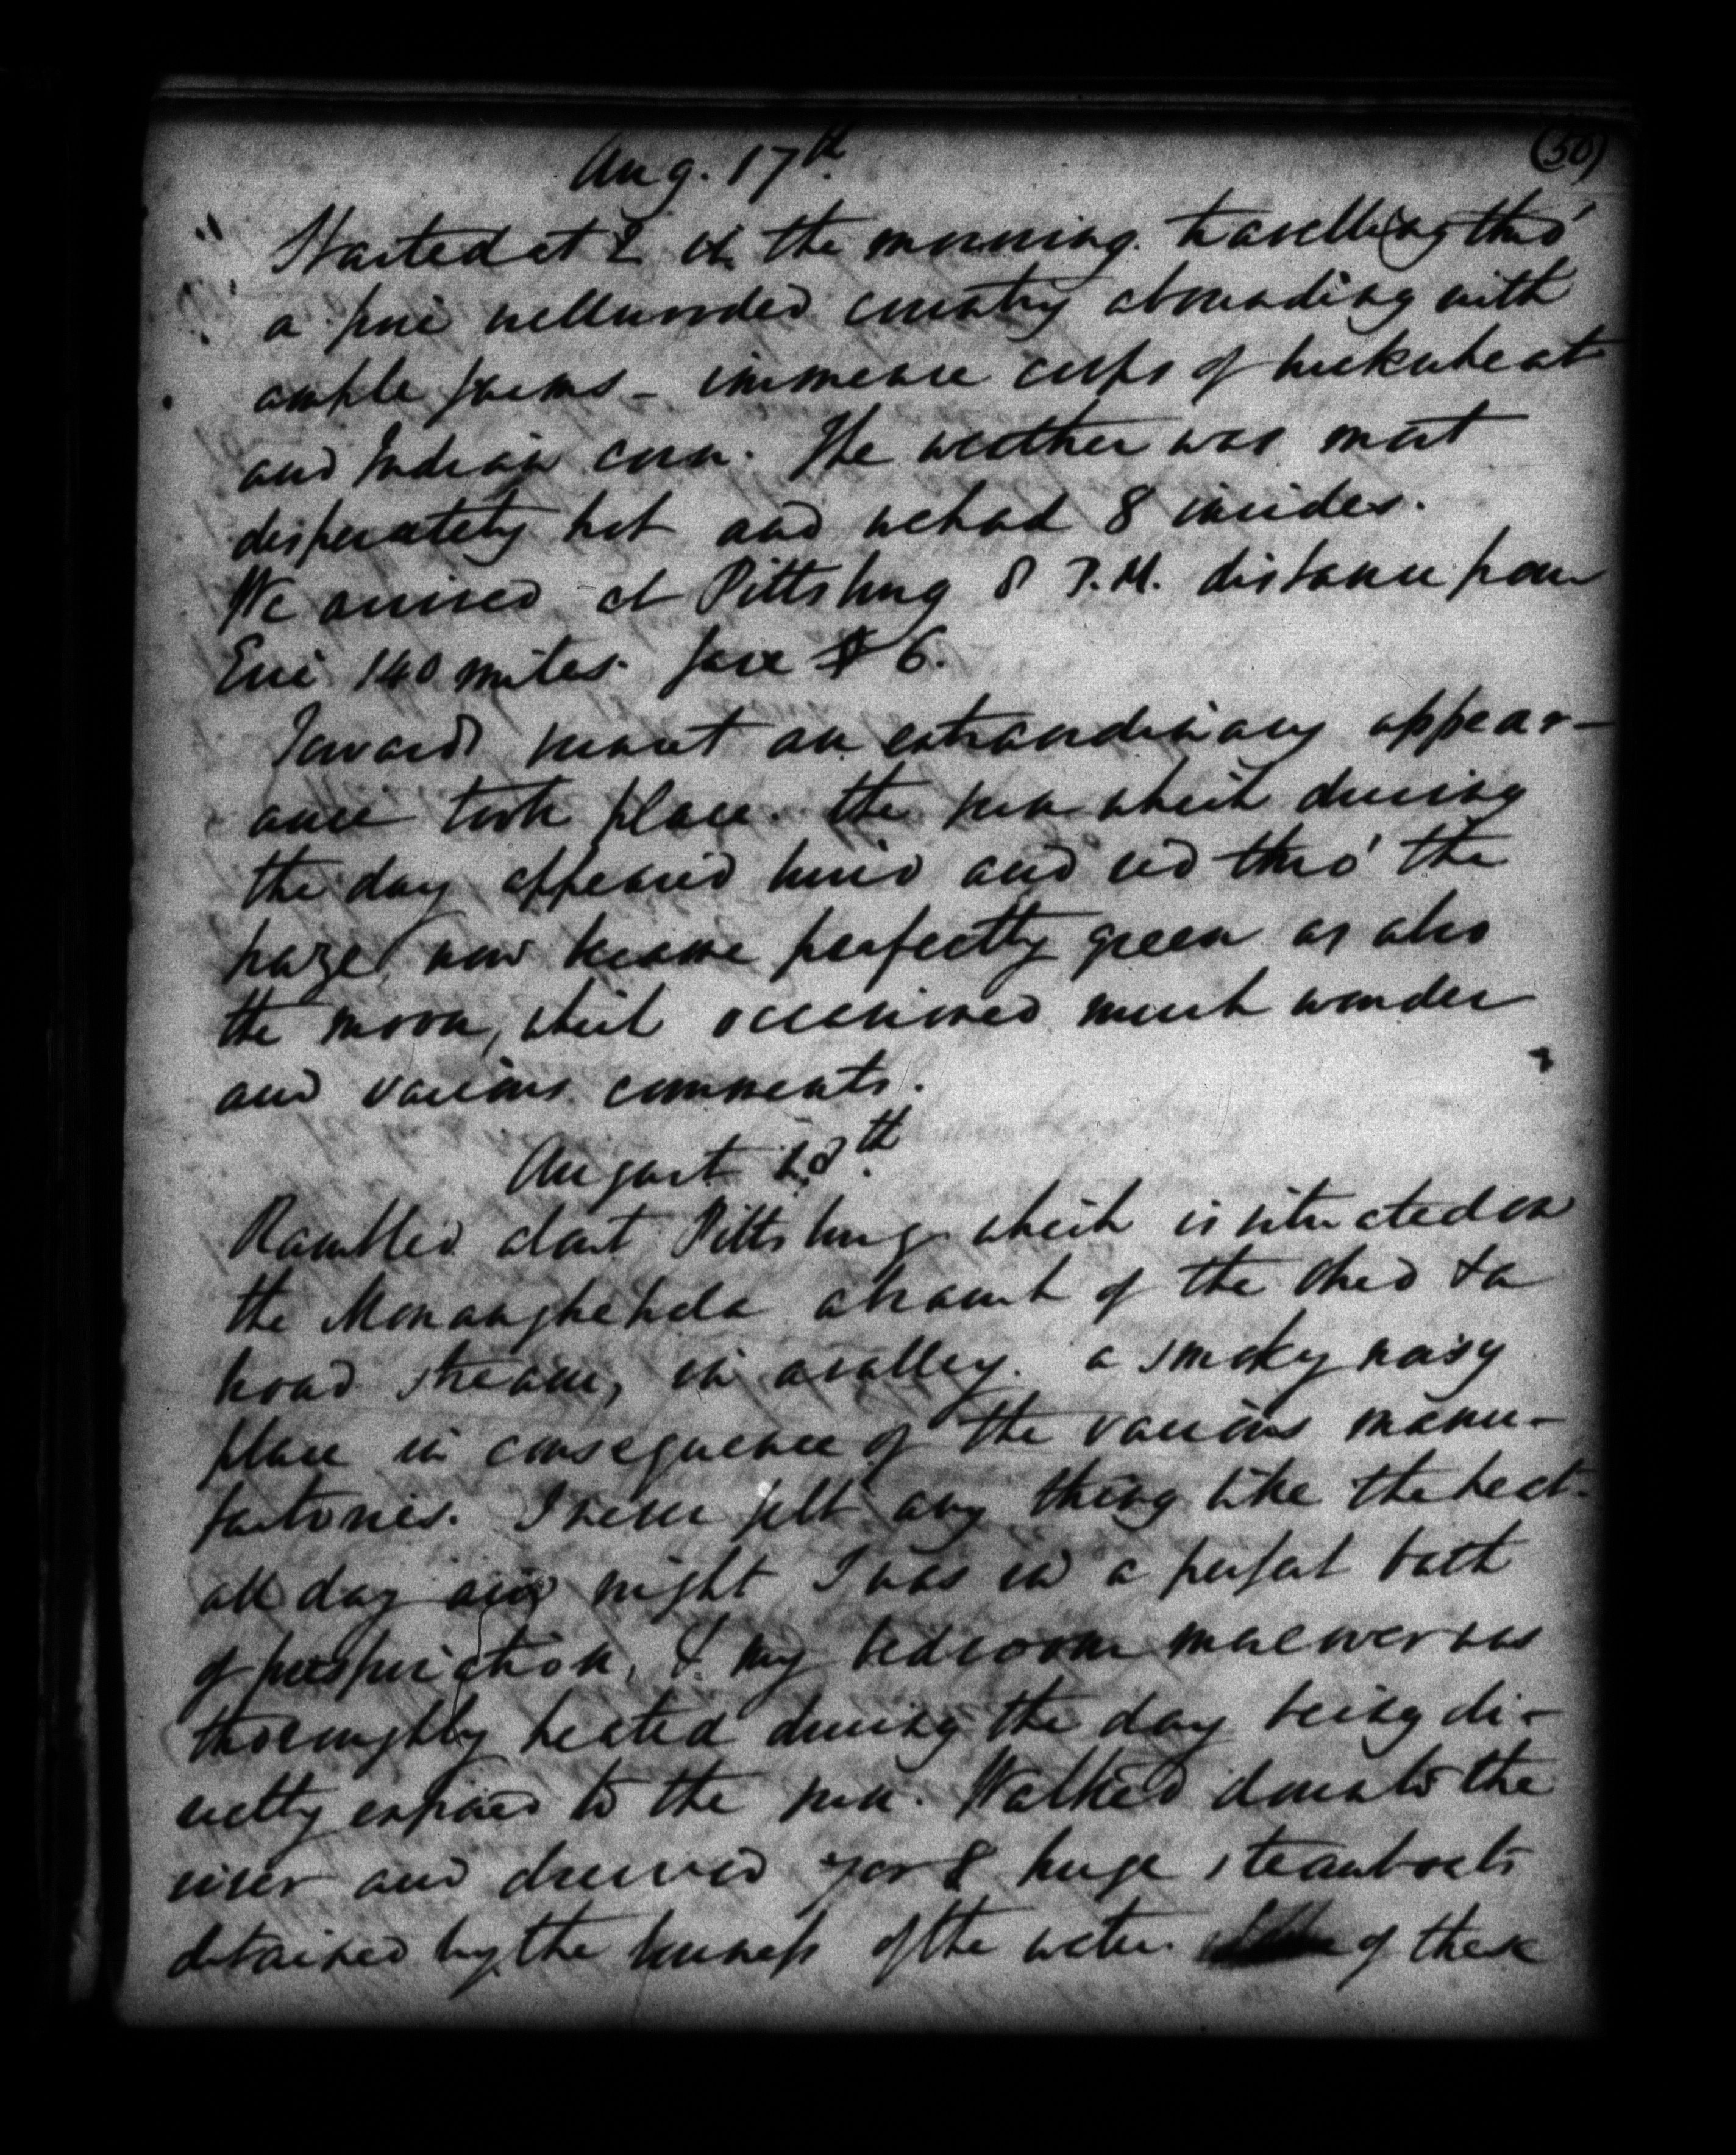 (50)
Aug. 17th
Started at 2 in the morning. travelling thro'
a fine wellwooded country abounding with
ample farms - immense crops of buckwheat
and Indian corn. The weather was most
desperately hot and we had 8 insides.
We arrived at Pittsburg 8 P.M. distance from
Erie 140 miles fare $6.
Towards sunset an extraordinary appear-
ance took place. the sun which during
the day appeared lurid and red thro' the
haze, now became perfectly green as also
the moon, which occasioned much wonder
and various comments.
August 18th
Rambled about Pittsburg which is situated on
the Monanghehela a branch of the Ohio & a
broad stream, in a valley. a smoky noisy
place in consequence of the various manu-
factories. I never felt any thing like the heat.
all day and night I was in a perfect bath
of perspiration, & my bedroom moreover was
thoroughly heated during the day being di-
rectly exposed to the sun. Walked down to the
river and observed 7 or 8 huge steamboats
detained by the lowness of the water. of these